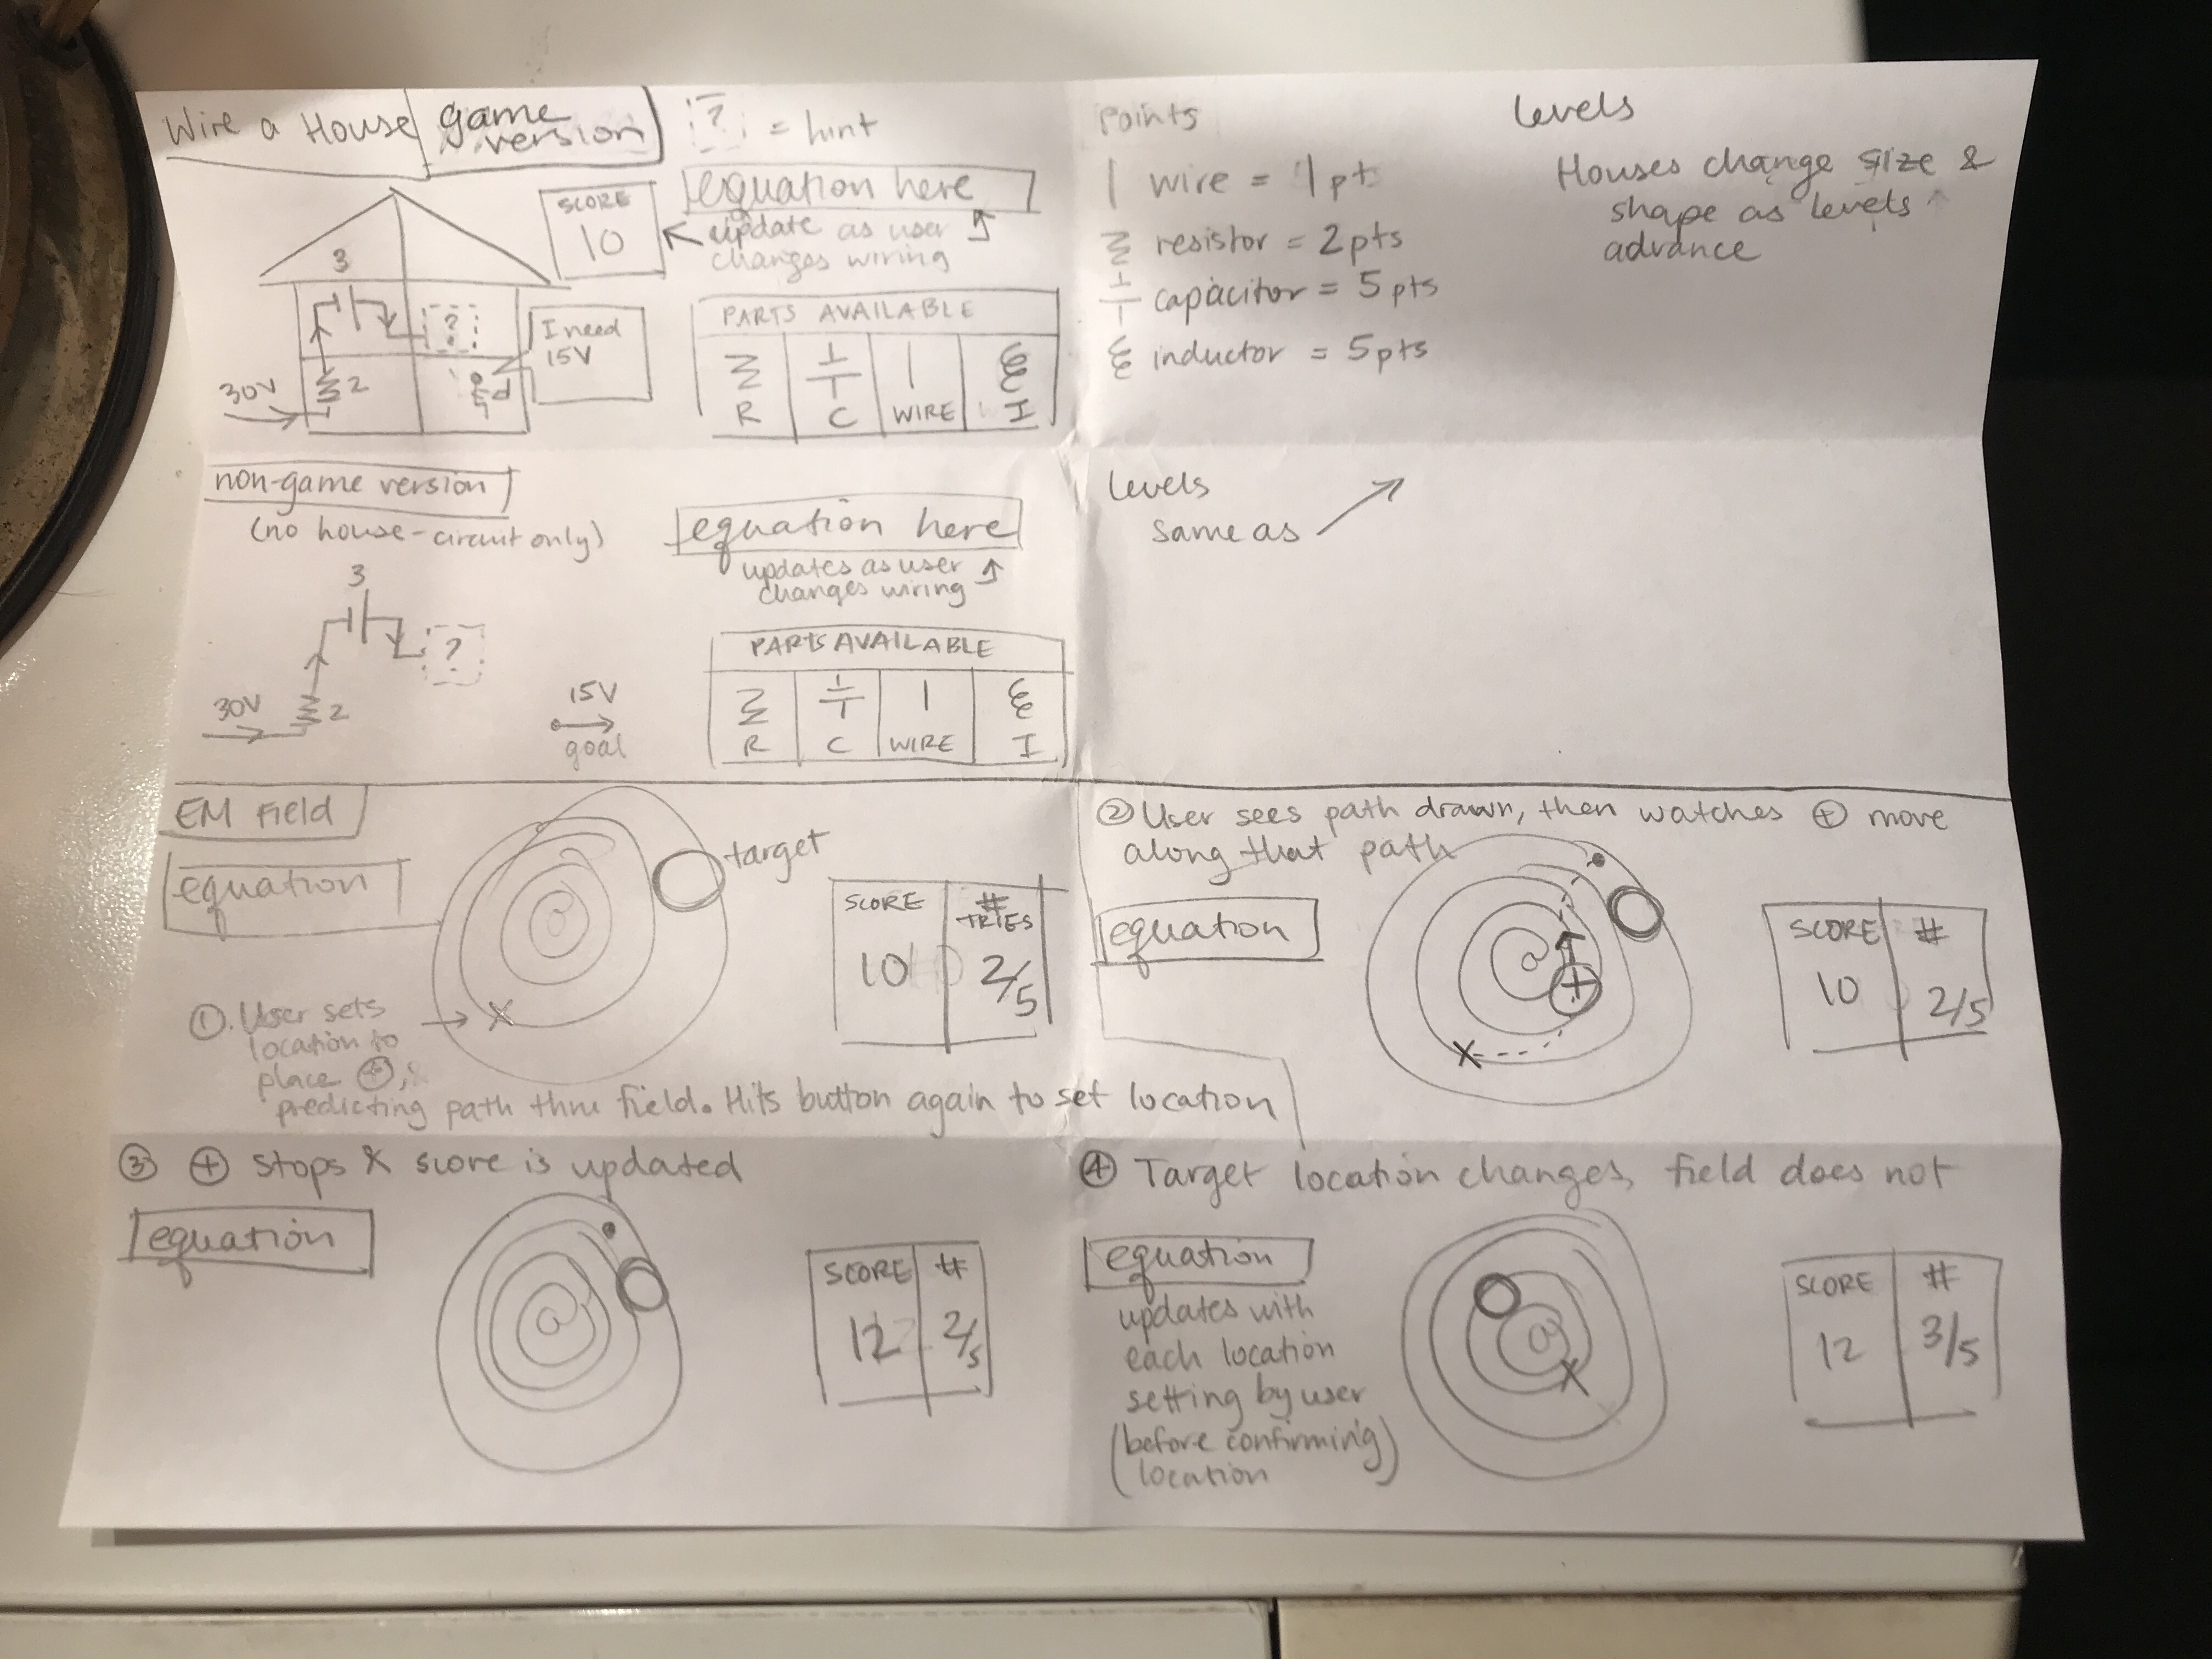 Wire a House
game
version
? = hint
SCORE
10
equation here
update as user
changes wiring
3
?
I need
15V
30V
2
PARTS AVAILABLE
R
C
WIRE
I
Points
wire = 1 pt
resistor = 2pts
capacitor = 5 pts
inductor = 5pts
levels
Houses change size &
shape as levels
advance
non-game version
(no house-circuit only)
equation here
updates as user
changes wiring
3
?
30V
2
15V
goal
PARTS AVAILABLE
R
C
WIRE
I
levels
same as
EM Field
equation
target
SCORE
10
#
TRIES
2/5
①. User sets
location to
place ⊕,
predicting path thru field. Hits button again to set location
X
② User sees path drawn, then watches ⊕ move
along that path
equation
X
SCORE
10
#
2/5
③ ⊕ stops & score is updated
equation
SCORE
12
#
2/5
④ Target location changes, field does not
equation
updates with
each location
setting by user
(before confirming)
location
X
SCORE
12
#
3/5